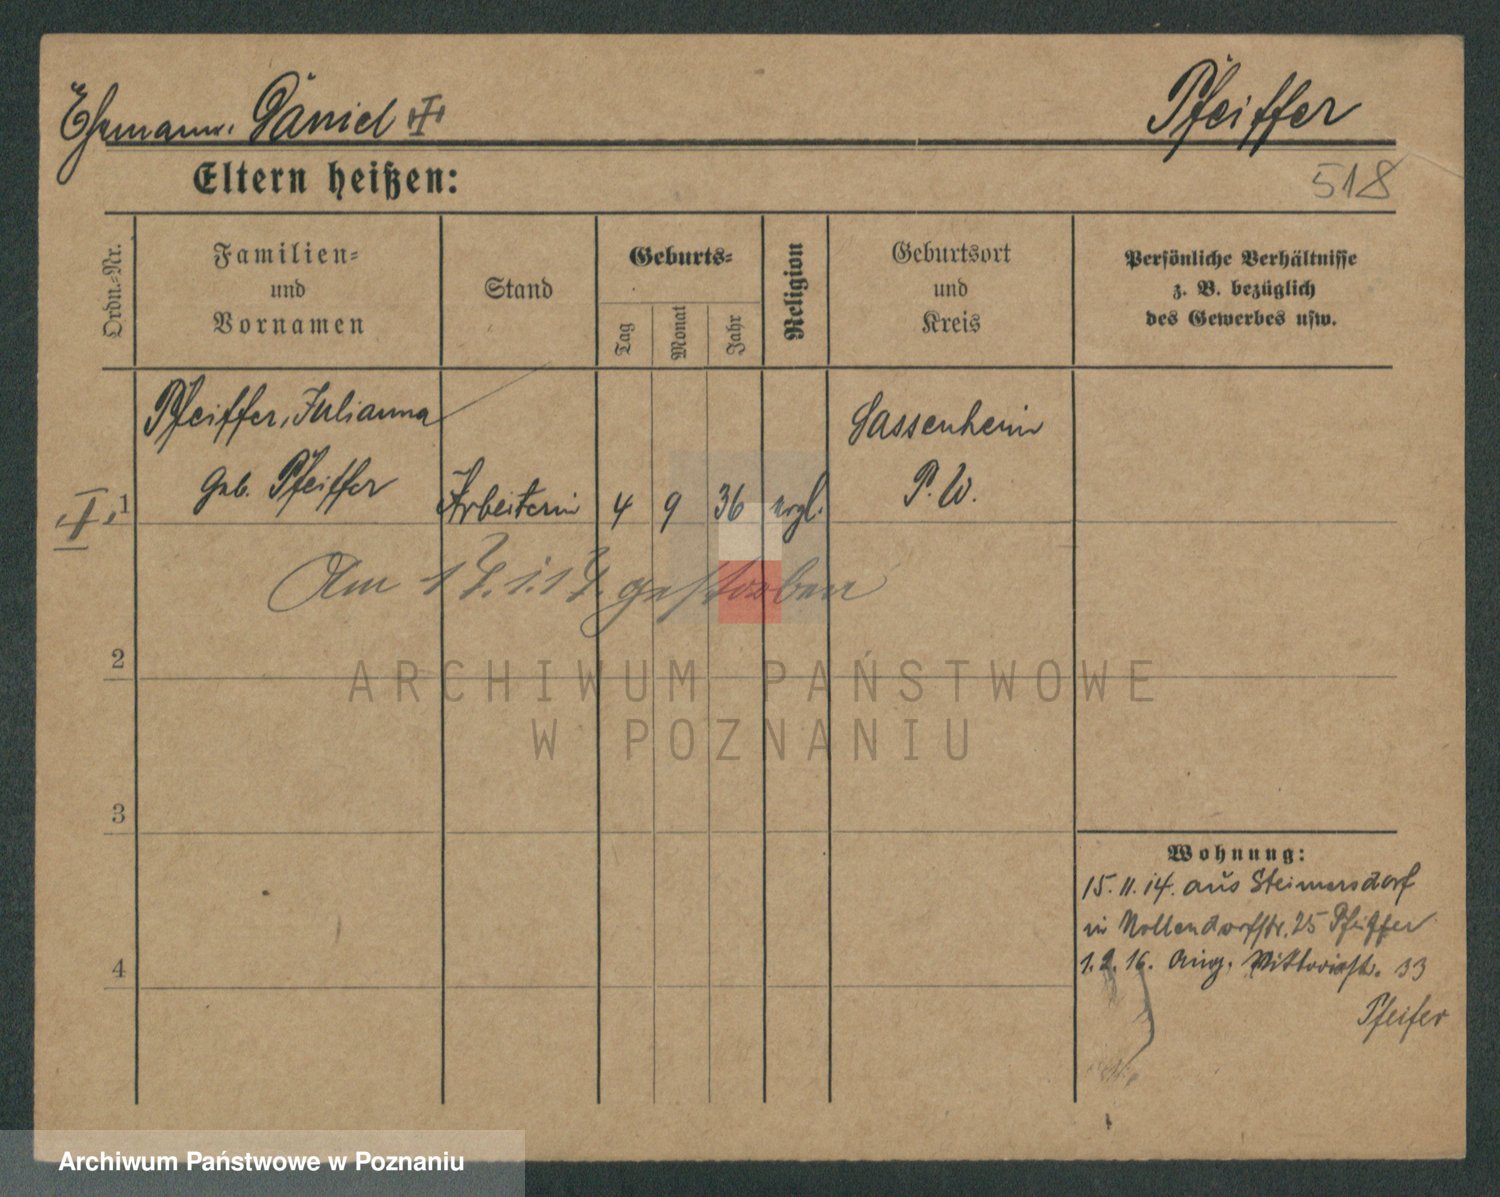 Ehemann. Däniel
Pfeiffer
Eltern heißen:
518
Ordn.-Nr.
Familien-
und
Vornamen
Stand
Geburts-
Tag
Monat
Jahr
Religion
Geburtsort
und
Kreis
Persönliche Verhältnisse
z. B. bezüglich
des Gewerbes usw.
Pfeiffer, Julianna
geb. Pfeiffer
1
Arbeiterin
4
9
36
evgl.
Sassenheim
P. W.
Am 17.1.17. gestorben
2
3
4
ARCHIWUM PAŃSTWOWE
W POZNANIU
Wohnung:
15. 11. 14. aus Steimersdorf
in Nollendorfstr. 25 Pfeiffer
1. 2. 16. Aug. Viktoriastr. 33
Pfeifer
Archiwum Państwowe w Poznaniu